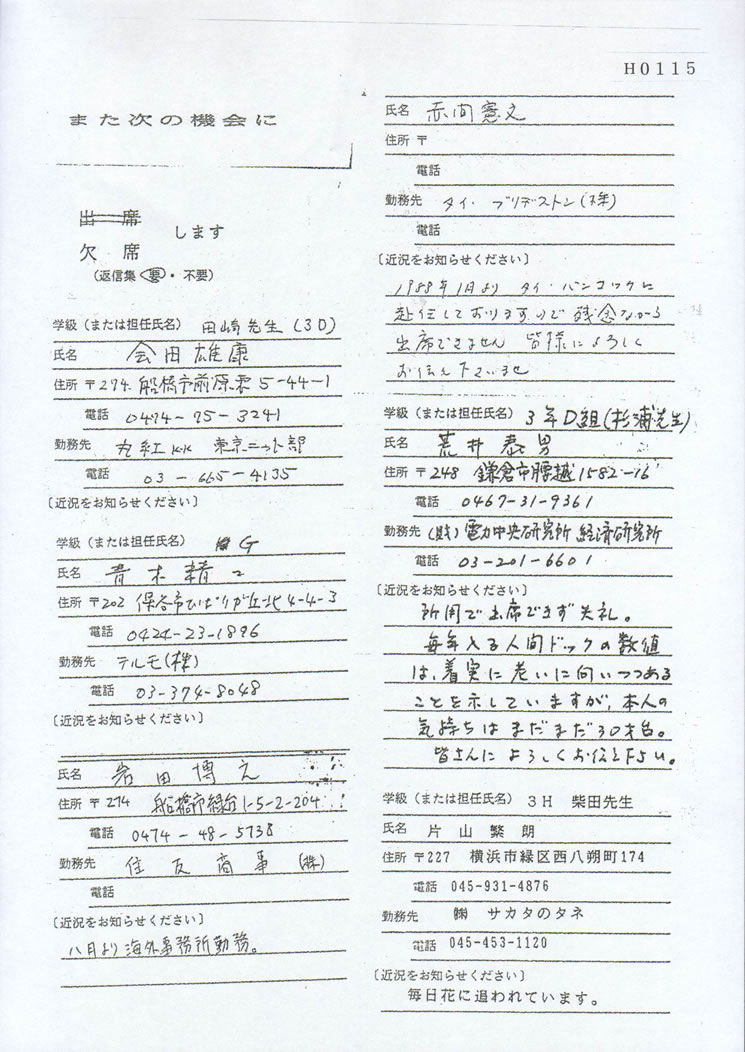 H0115
また次の機会に
出席
欠席 します
(返信集 要・不要)
学級(または担任氏名) 田崎先生(3D)
氏名 会田雄康
住所 〒274. 船橋市前原東5-44-1
電話 0474-75-3241
勤務先 丸紅KK 東京ニット部
電話 03-665-4135
〔近況をお知らせください〕
学級(または担任氏名) G
氏名 青木
住所 〒202 保谷市ひばりが丘北4-4-3
電話 0424-23-1896
勤務先 テルモ(株)
電話 03-374-8048
〔近況をお知らせください〕
氏名 岩田博之
住所 〒274 船橋市緑台1-5-2-204
電話 0474-48-5738
勤務先 住友商事(株)
電話
〔近況をお知らせください〕
八月より海外事務所勤務。
氏名 赤間憲之
住所 〒
電話
勤務先 タイ・ブリヂストン(株)
電話
〔近況をお知らせください〕
1988年1月より タイ・バンコックに
赴任しておりますので 残念ながら
出席できません 皆様によろしく
お伝え下さいませ
学級(または担任氏名) 3年D組(杉浦先生)
氏名 荒井泰男
住所 〒248 鎌倉市腰越1582-16
電話 0467-31-9361
勤務先 (財)電力中央研究所 経済研究所
電話 03-201-6601
〔近況をお知らせください〕
所用で出席できず失礼。
毎年入る人間ドックの数値
は、着実に老いに向いつつある
ことを示していますが、本人の
気持ちはまだまだ30才台。
皆さんによろしくお伝え下さい。
学級(または担任氏名) 3H 柴田先生
氏名 片山繁朗
住所 〒227 横浜市緑区西八朔町174
電話 045-931-4876
勤務先 ㈱ サカタのタネ
電話 045-453-1120
〔近況をお知らせください〕
毎日花に追われています。